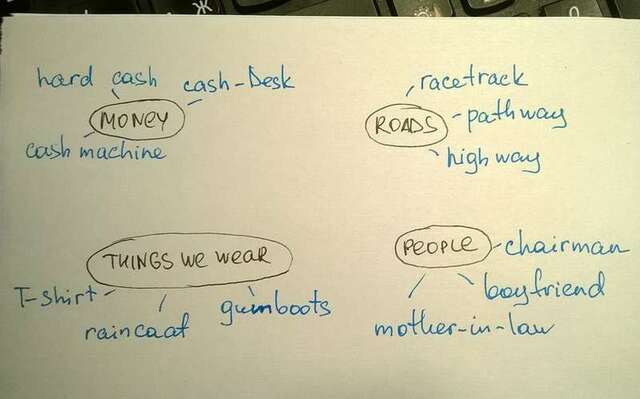 hard cash
cash-Desk
MONEY
cash machine
racetrack
ROADS
pathway
highway
THINGS WE WEAR
T-shirt
raincoat
gumboots
PEOPLE
chairman
boyfriend
mother-in-law
Ж